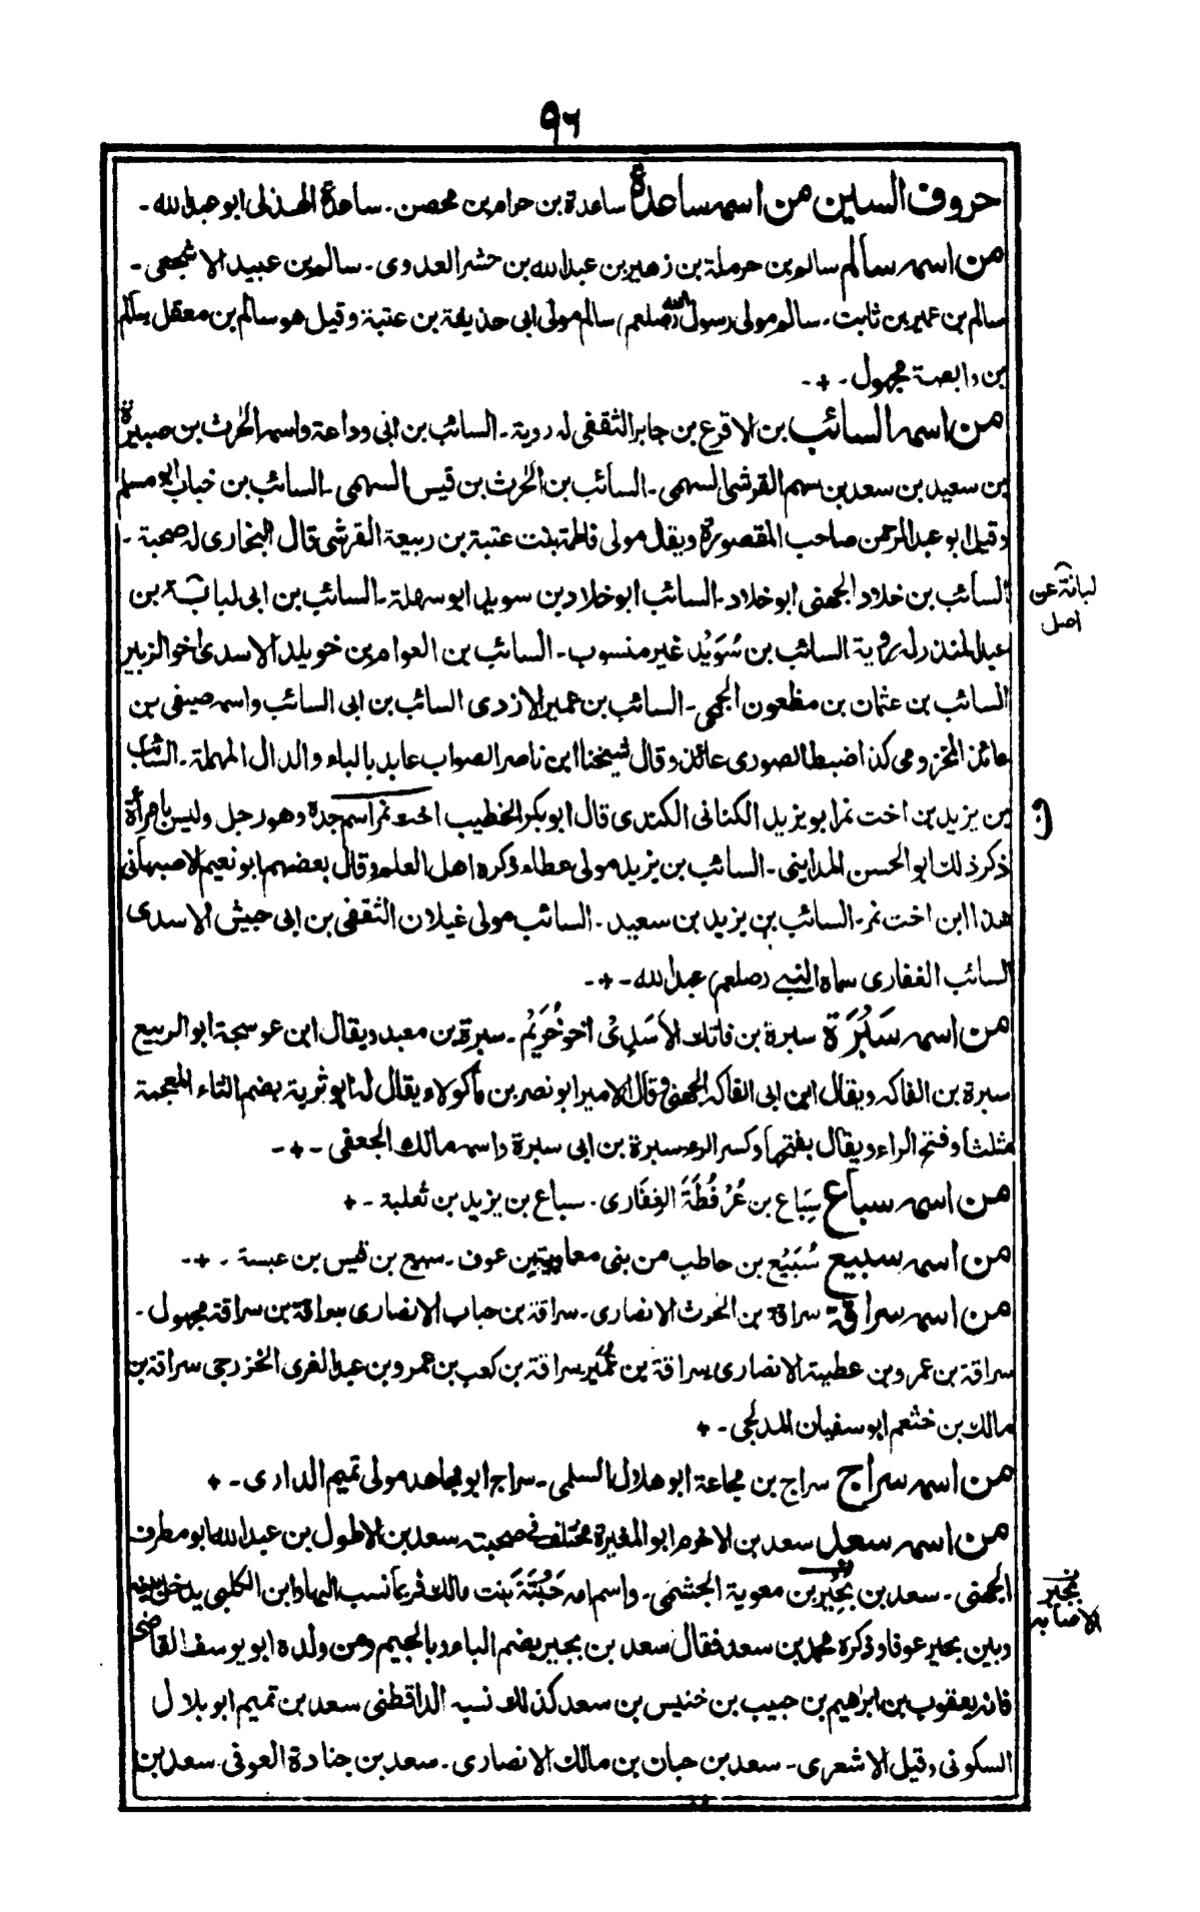 ٩٦
حروف السين من اسمه ساعدة ساعدة بن حرام بن محصن ـ ساعدة الهذلى ابو عبدالله ـ
من اسمه سالم سالم بن حرملة بن زهير بن عبدالله بن حشر العدوى ـ سالم بن عبيد الاشجعى ـ
سالم بن عمير بن ثابت ـ سالم مولى رسول الله (صلعم) سالم مولى ابى حذيفة بن عتبة وقيل هو سالم بن معقل سالم
بن وابصة مجهول ـ + ـ
من اسمه السائب بن الاقرع بن جابر الثقفى له روية ـ السائب بن ابى وداعة واسمه الحٰرث بن صبيرة
بن سعيد بن سعد بن سهم القرشى السهمى ـ السائب بن الحٰرث بن قيس السهمى ـ السائب بن خباب ابو مسلم
وقيل ابو عبد الرحمن صاحب المقصورة ويقال مولى فاطمة بنت عتبة بن ربيعة القرشى قال البخارى له صحبة ـ
السائب بن خلاد الجهنى ابو خلاد ـ السائب ابو خلاد بن سويد ابو سهلة ـ السائب بن ابى لبابة بن
لبانة عن
اصل
عبد المنذر له روية السائب بن سُوَيْد غير منسوب ـ السائب بن العوام بن خويلد الاسدى اخو الزبير
السائب بن عثمان بن مظعون الجمحى ـ السائب بن عمير الازدى السائب بن ابى السائب واسمه صيفى بن
عائذ المخزومى كذا ضبط الصورى عائذ وقال شيخنا ابن ناصر الصواب عابد بالباء والدال المهملة ـ السائب
بن يزيد بن اخت نمر ابو يزيد الكنانى الكندى قال ابو بكر الخطيب اخت نمر اسم جدة وهو رجل وليس بامرأة
ذكر ذلك ابو الحسن المداينى ـ السائب بن يزيد مولى عطاء ذكره اهل العلم وقال بعضهم ابو نعيم الاصبهانى
هذا ابن اخت نمر ـ السائب بن يزيد بن سعيد ـ السائب مولى غيلان الثقفى بن ابى حبيش الاسدى
السائب الغفارى سماه النبى (صلعم) عبدالله ـ + ـ
من اسمه سَبُرَة سبرة بن فاتك الاَسَدِىُ اخو خُرَيْمُ ـ سبرة بن معبد ويقال ابن عوسجة ابو الربيع
سبرة بن الفاكه ويقال ابن ابى الفاكه الجهنى وقال الامير ابو نصر بن ماكولاء ويقال له ابو ثرية بضم الثاء المعجمة
مثلثا وفتح الراء ويقال بفتحها وكسر الراء سبرة بن ابى سبرة واسمه مالك الجعفى ـ + ـ
من اسمه سباع سِبَاع بن عُرْفُطَةَ الغِفَارى ـ سباع بن يزيد بن ثعلبة ـ +
من اسمه سبيع سُبَيْع بن حاطب من بنى معاوية بن عوف ـ سبيع بن قيس بن عبسة ـ + ـ
من اسمه سراقة سراقة بن الحٰرث الانصارى ـ سراقة بن حباب الانصارى سراقة بن سراقة مجهول ـ
سراقة بن عمرو بن عطية الانصارى سراقة بن عُمَير سراقة بن كعب بن عمرو بن عبد الغرى الخزرجى سراقة بن
مالك بن خثعم ابو سفيان المدلجى ـ +
من اسمه سراج سراج بن مجاعة ابو هلال السلمى ـ سراج ابو مجاهد مولى تميم الدارى ـ +
من اسمه سعد سعد بن الاخرم ابو المغيرة مختلف فى صحبته سعد بن الاطول بن عبدالله ابو مطرف
الجهنى ـ سعد بن بُجَيْر بن معوية الجشمى ـ واسم امه حَبْتَةَ بنت مالك فربما نسب اليها وابن الكلبى يدخل بينه
بُجير
الاصابه
وبين بجير عوفا وذكره محمد بن سعد فقال سعد بن بجير بضم الباء وبالجيم ومن ولده ابو يوسف القاضى
فانه يعقوب بن ابراهيم بن حبيب بن خنيس بن سعد كذلك نسبه الداقطنى سعد بن تميم ابو بلال
السكونى وقيل الاشعرى ـ سعد بن حبان بن مالك الانصارى ـ سعد بن جنادة العوفى ـ سعد بن